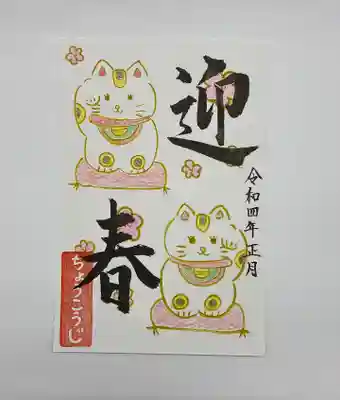 迎春
令和四年正月
ちょうこうじ